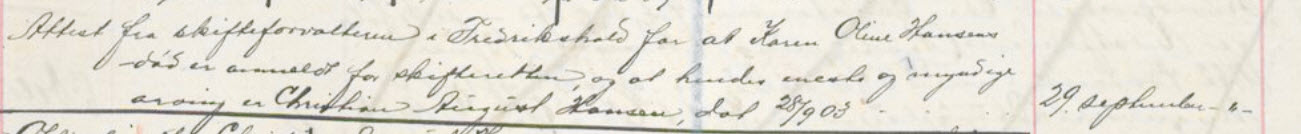 Attest fra skifteforvalteren i Fredrikshald for at Karen Oline Hansens
död er anmeldt for skifteretten, og at hendes eneste og myndige
arving er Christian August Hansen, dat 28/9 03
29. september -"-